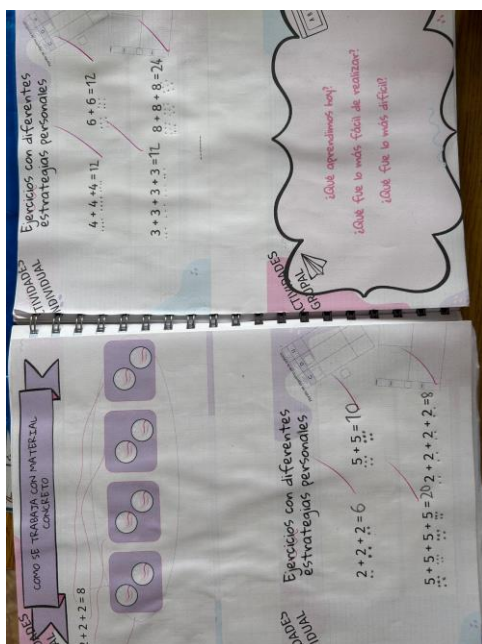 COMO SE TRABAJA CON MATERIAL
CONCRETO
+ 2 + 2 = 8
Ejercicios con diferentes
estrategias personales
2 + 2 + 2 = 6
5 + 5 = 10
5 + 5 + 5 + 5 = 20
2 + 2 + 2 + 2 = 8
Ejercicios con diferentes
estrategias personales
4 + 4 + 4 = 12
6 + 6 = 12
3 + 3 + 3 + 3 = 12
8 + 8 + 8 = 24
ACTIVIDADES
GRUPAL
¿Qué aprendimos hoy?
¿Qué fue lo más fácil de realizar?
¿Qué fue lo más difícil?